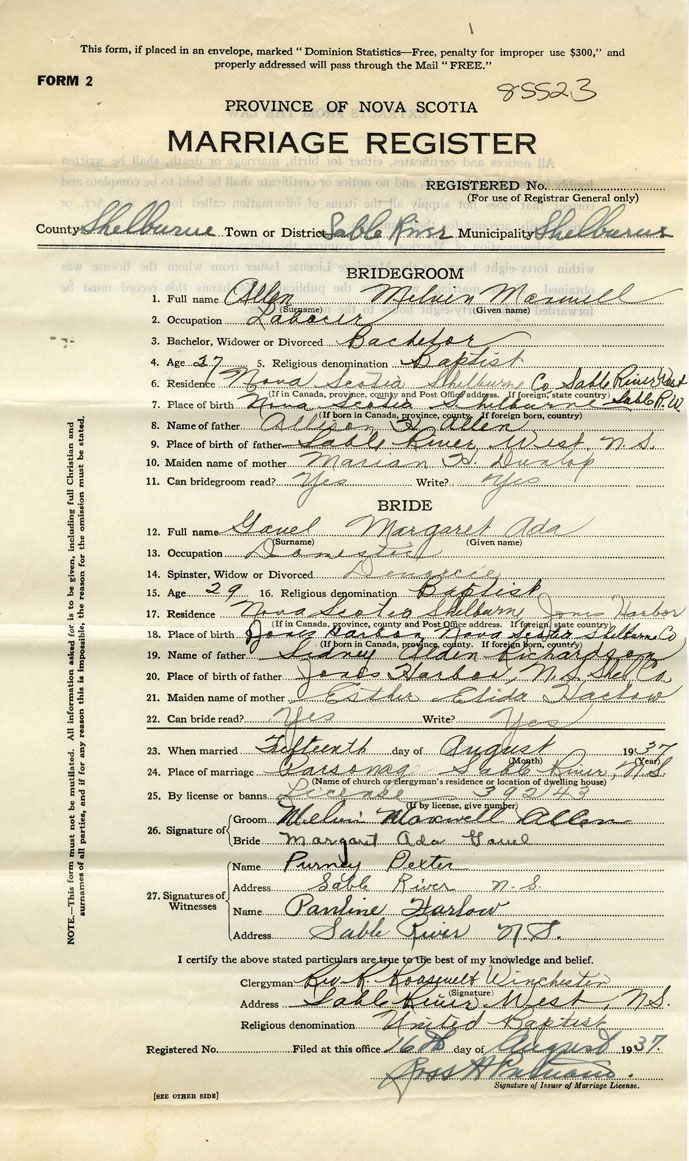 This form, if placed in an envelope, marked “Dominion Statistics—Free, penalty for improper use $300,” and
properly addressed will pass through the Mail “FREE.”
FORM 2
85523
PROVINCE OF NOVA SCOTIA
MARRIAGE REGISTER
REGISTERED No.
(For use of Registrar General only)
County Shelburne Town or District Sable River Municipality Shelburne
BRIDEGROOM
1. Full name Allen Melvin Maxwell
(Surname) (Given name)
2. Occupation Laborer
3. Bachelor, Widower or Divorced Bachelor
4. Age 27 5. Religious denomination Baptist
6. Residence Nova Scotia Shelburne Co Sable River West
(If in Canada, province, county and Post Office address. If foreign, state country)
7. Place of birth Nova Scotia Shelburne Sable R. W
(If born in Canada, province, county. If foreign born, country)
8. Name of father Allison H. Allen
9. Place of birth of father Sable River West, N.S.
10. Maiden name of mother Marian H Dunlop
11. Can bridegroom read? Yes Write? Yes
BRIDE
12. Full name Gavel Margaret Ada
(Surname) (Given name)
13. Occupation Domestic
14. Spinster, Widow or Divorced
15. Age 29 16. Religious denomination Baptist
17. Residence Nova Scotia Shelburn Jones Harbor
(If in Canada, province, county and Post Office address. If foreign, state country)
18. Place of birth Jones Harbor, Nova Scotia Shelburne Co
(If born in Canada, province, county. If foreign born, country)
19. Name of father Sidney Alden Richardson
20. Place of birth of father Jones Harbor, N.S. Shel Co.
21. Maiden name of mother Esther Elida Harlow
22. Can bride read? Yes Write? Yes
23. When married Fifteenth day of August 1937
(Month) (Year)
24. Place of marriage Parsonag Sable River, N.S.
(Name of church or clergyman's residence or location of dwelling house)
25. By license or banns License 39243
(If by license, give number)
26. Signature of
Groom Melvin Maxwell Allen
Bride Margaret Ada Gavel
27. Signatures of Witnesses
Name Purney Dexter
Address Sable River N.S.
Name Pauline Harlow
Address Sable River N.S.
I certify the above stated particulars are true to the best of my knowledge and belief.
Clergyman Rev R. Roosevelt Winchester
(Signature)
Address Sable River West, N.S.
Religious denomination United Baptist
Registered No. Filed at this office 16th day of August 1937.
Signature of Issuer of Marriage License.
[SEE OTHER SIDE]
NOTE.—This form must not be mutilated. All information asked for is to be given, including full Christian and
surnames of all parties, and if for any reason this is impossible, the reason for the omission must be stated.